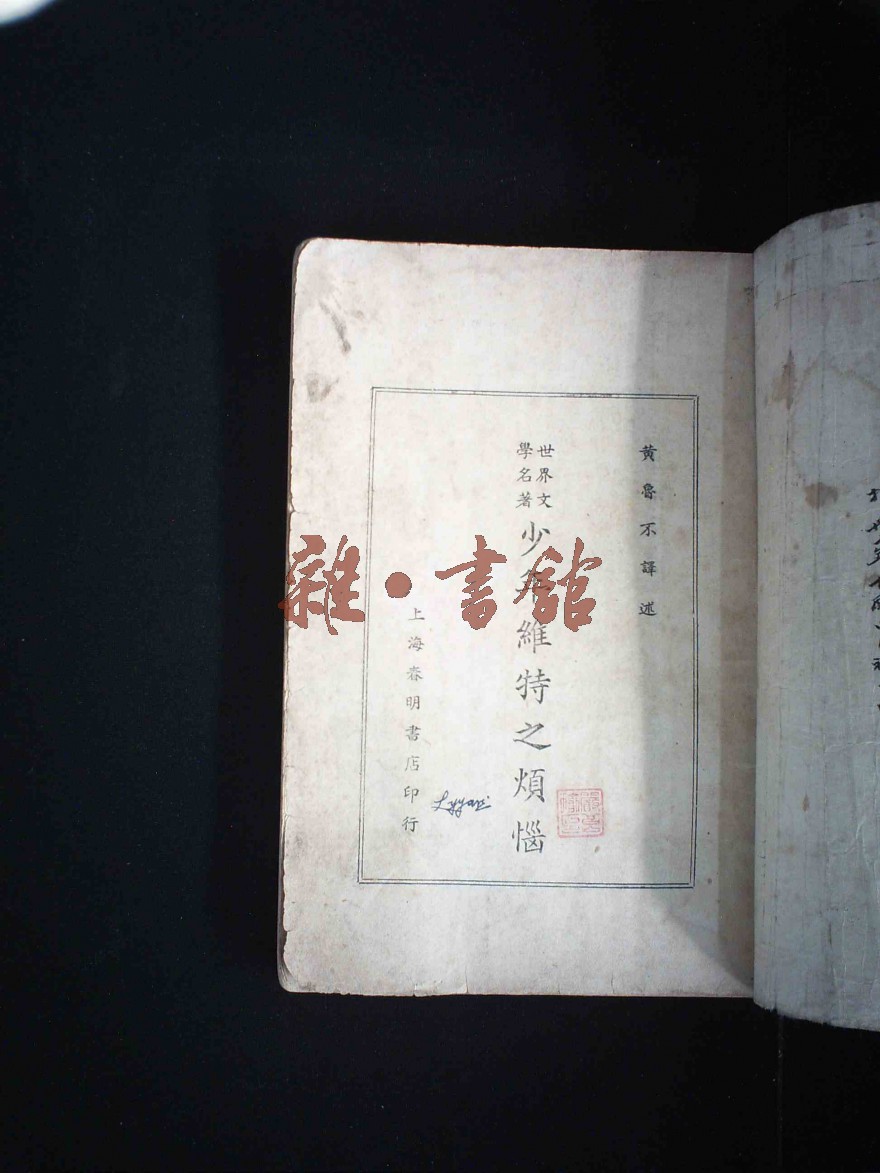 黄魯不譯述
世界文
學名著
少年維特之煩惱
上海春明書店印行
雜·書館